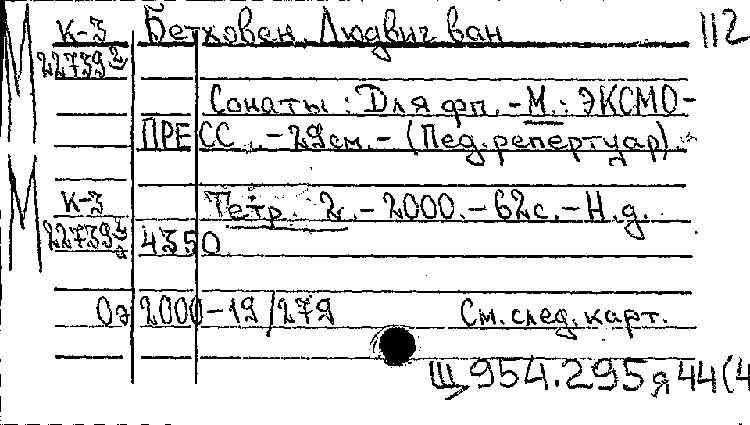 М К-3 Бетховен, Людвиг ван 112
22739
Сонаты : Для фп. - М. : ЭКСМО-
ПРЕСС. - 29 см. - (Пед. репертуар).
М К-3 Тетр. 2. - 2000. - 62 с. - Н. д.
22739 4350
Оэ 2000-19/279 См. след. карт.
Щ954.295я44(4